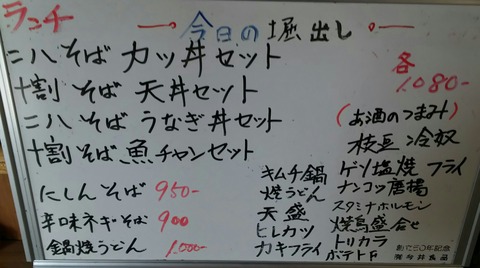 ランチ
今日の堀出し
二八そば カツ丼セット
十割そば 天丼セット
二八そば うなぎ丼セット
十割そば 魚チャンセット
各
1,080-
にしんそば 950-
辛味ネギそば 900
鍋焼うどん 1,000-
キムチ鍋
焼うどん
天盛
ヒレカツ
カキフライ
(お酒のつまみ)
枝豆 冷奴
ゲソ塩焼 フライ
ナンコツ唐揚
スタミナホルモン
焼鳥盛合せ
トリカラ
ポテトF
創立50年記念